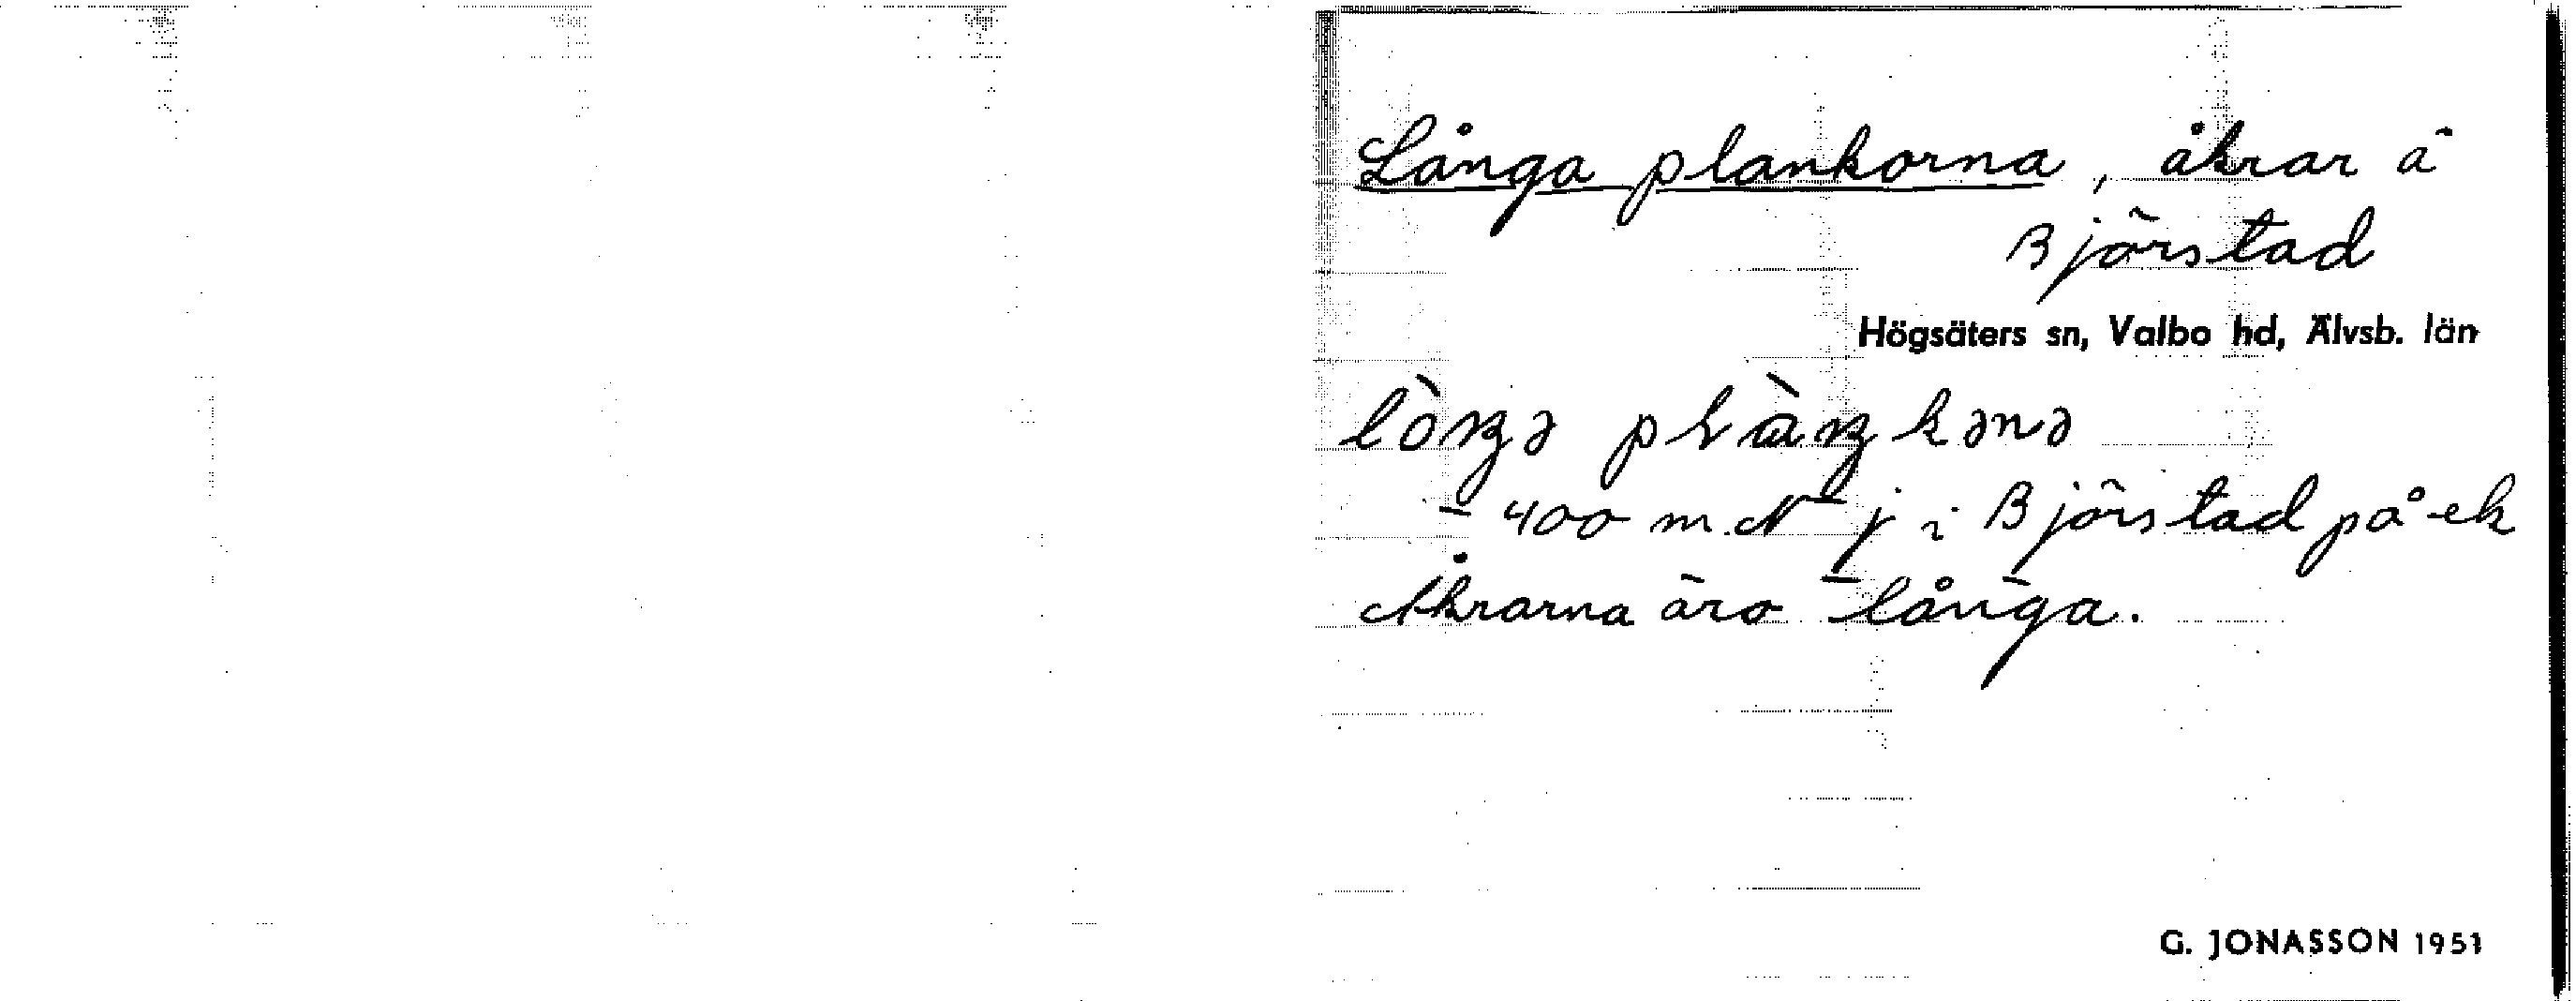 Långa plankorna, åkrar å
Björstad
Högsäters sn, Valbo hd, Älvsb. län
400 m N j i Björstad på ek
Åkrarna äro långa.
G. JONASSON 1951